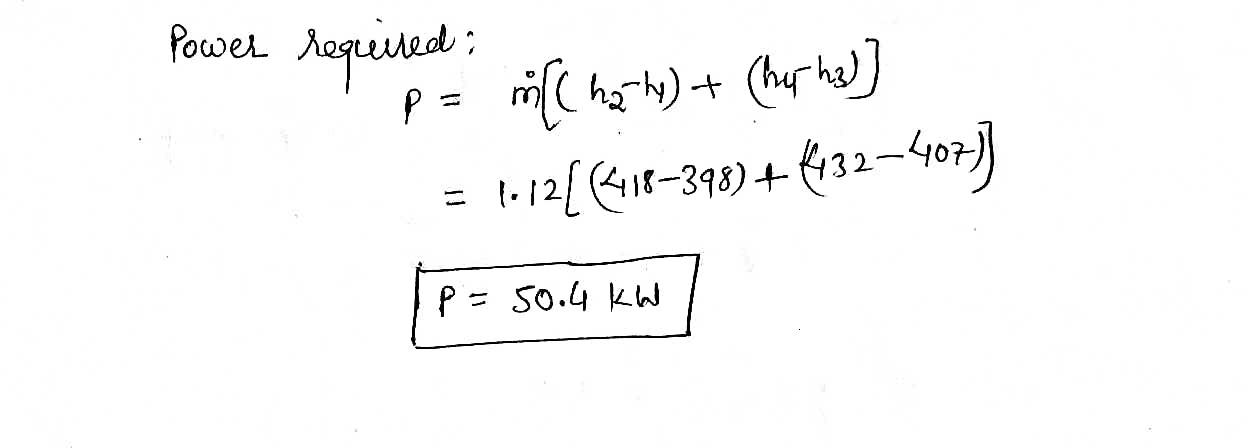 Power required:
P = ṁ[(h2-h1) + (h4-h3)]
= 1.12[(418-398) + (432-407)]
P = 50.4 kW